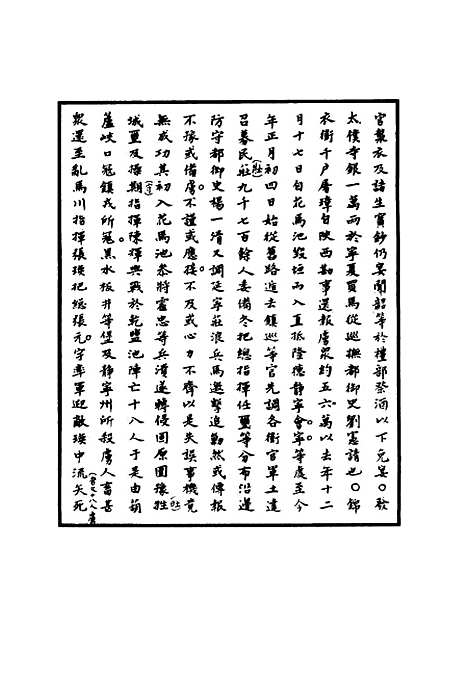 官襲衣及諸生寳鈔仍宴聞韶等於禮部祭酒以下免宴〇發
太僕寺銀一萬两於寧夏買馬從巡撫都御史劉憲請也〇錦
衣衛千户屠璋自陕西勘事還報虜衆約五六萬以去年十二
月十七日自花馬池毀垣而入直抵隆德静寧會寧等處至今
年正月初四日始從舊路遁去鎮巡等官先調各衛官軍土達
召募民莊(壯)九千七百餘人委備冬把總指揮任璽等分布沿邊
防守都御史楊一清又調延寧莊浪兵馬邀擊追勦然或傳報
不豫或備虜不謹或應接不及或心力不齊以是失誤事機竟
無成功其初入花馬池叅將霍忠等兵潰遂轉侵固原圍豫姓
城璽及操期指揮陳揮與戰於乾鹽池陣亡十八人于是由葫
蘆峽口冦鎮戎所冦黑水板井等堡及静寧州所殺虜人畜甚
衆還至亂馬川指揮張瑛把總張元字率軍迎敵瑛中流矢死